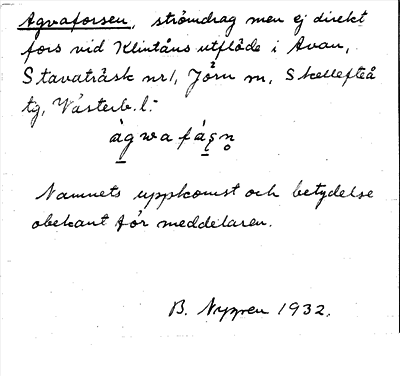 Agvaforsen, strömdrag men ej direkt
fors vid Klintåns utflöde i Avan,
Stavaträsk nr 1, Jörn sn, Skellefteå
tg, Västerb. l.-
àgwafáşn̥
Namnets uppkomst och betydelse
obekant för meddelaren.
B. Nygren 1932.